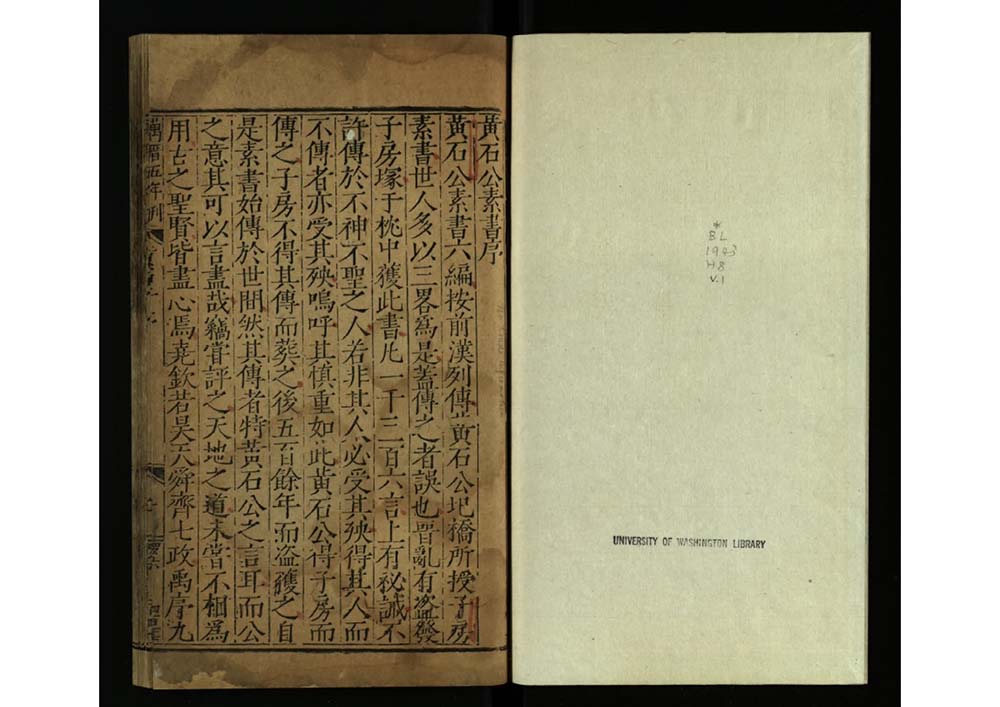 黃石公素書序
黃石公素書六編按前漢列傳黃石公圯橋所授子房
素書世人多以三畧爲是蓋傳之者誤也晋亂有盜發
子房塚于枕中獲此書凢一千三百六言上有秘誡不
許傳於不神不聖之人若非其人必受其殃得其人而
不傳者亦受其殃嗚呼其慎重如此黃石公得子房而
傳之子房不得其傳而葬之後五百餘年而盗獲之自
是素書始傳於世間然其傳者特黃石公之言耳而公
之意其可以言盡哉竊嘗評之天地之道未嘗不相爲
用古之聖賢皆盡心焉堯欽若昊天舜齊七政禹序九
五年刊
*
BL
1943
H8
V.1
UNIVERSITY OF WASHINGTON LIBRARY